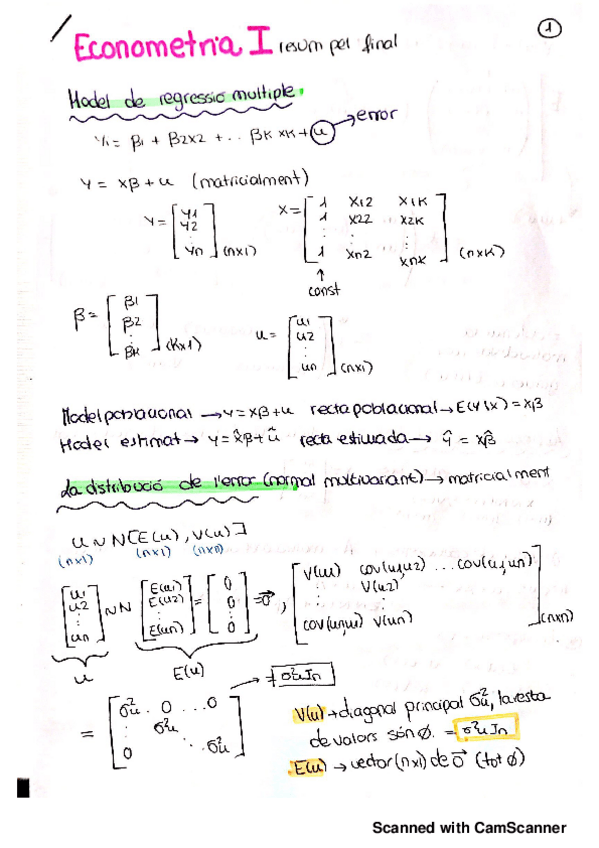 1
Econometria I resum pel final
Model de regressió multiple.
Yi = β1 + β2X2 + ... βK XK + u → error
Y = Xβ + u (matricialment)
Y = [Y1 Y2 ⋮ Yn] (nx1) X = [1 X12 X1K
1 X22 X2K
⋮ ⋮ ⋮
1 Xn2 XnK] (nxK)
↑
const
β = [β1 β2 ⋮ βK] (Kx1) u = [u1 u2 ⋮ un] (nx1)
Model poblacional → Y = Xβ + u recta poblacional → E(Y|X) = Xβ
Model estimat → Y = Xβ̂ + û recta estimada → Ŷ = Xβ̂
La distribució de l'error (normal multivariant) → matricialment
u ~ N[E(u), V(u)]
(nx1) (nx1) (nxn)
[u1 u2 ⋮ un] ~ N [E(u1) E(u2) ⋮ E(un)] = [0 0 ⋮ 0] = 0⃗ , [V(u1) cov(u1,u2) ... cov(u1,un)
⋮ V(u2) ⋮
cov(u1,un) V(un)] (nxn)
u E(u)
= [σ²u 0 ... 0
⋮ σ²u ⋱ ⋮
0 ... σ²u] → = σ²u In
V(u) → diagonal principal σ²u, la resta
de valors són ∅. = σ²u In
E(u) → vector (nx1) de 0⃗ (tot ∅)
Scanned with CamScanner